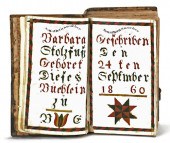 Barbara
Stolzfuß
Gehöret
Dieses
Büchlein
zu
Geschriben
Den
24 ten
September
1860